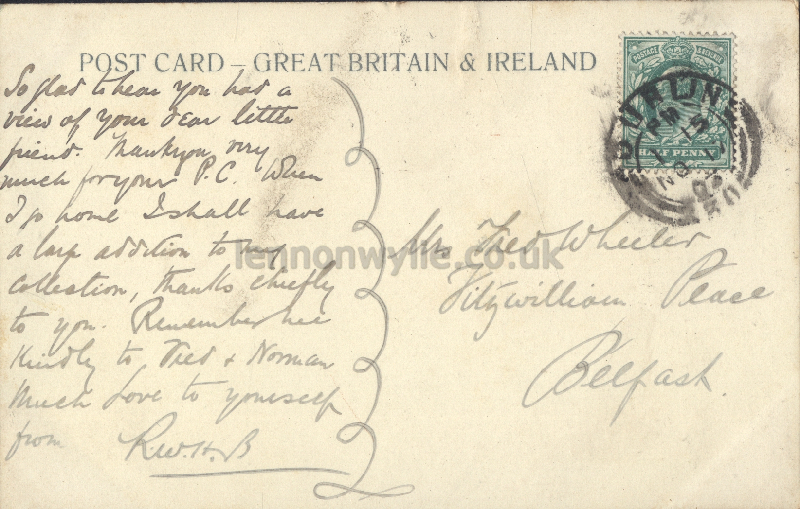 POST CARD – GREAT BRITAIN & IRELAND
So glad to hear you had a
view of your dear little
friend. Thank you very
much for your P.C. When
I go home I shall have
a large addition to my
collection, thanks chiefly
to you. Remember me
kindly to Fred & Norman
Much Love to yourself
from R.W.H.B
POSTAGE & REVENUE
HALF PENNY
Mrs Fred Wheeler
Fitzwilliam Place
Belfast.
lennonwylie.co.uk